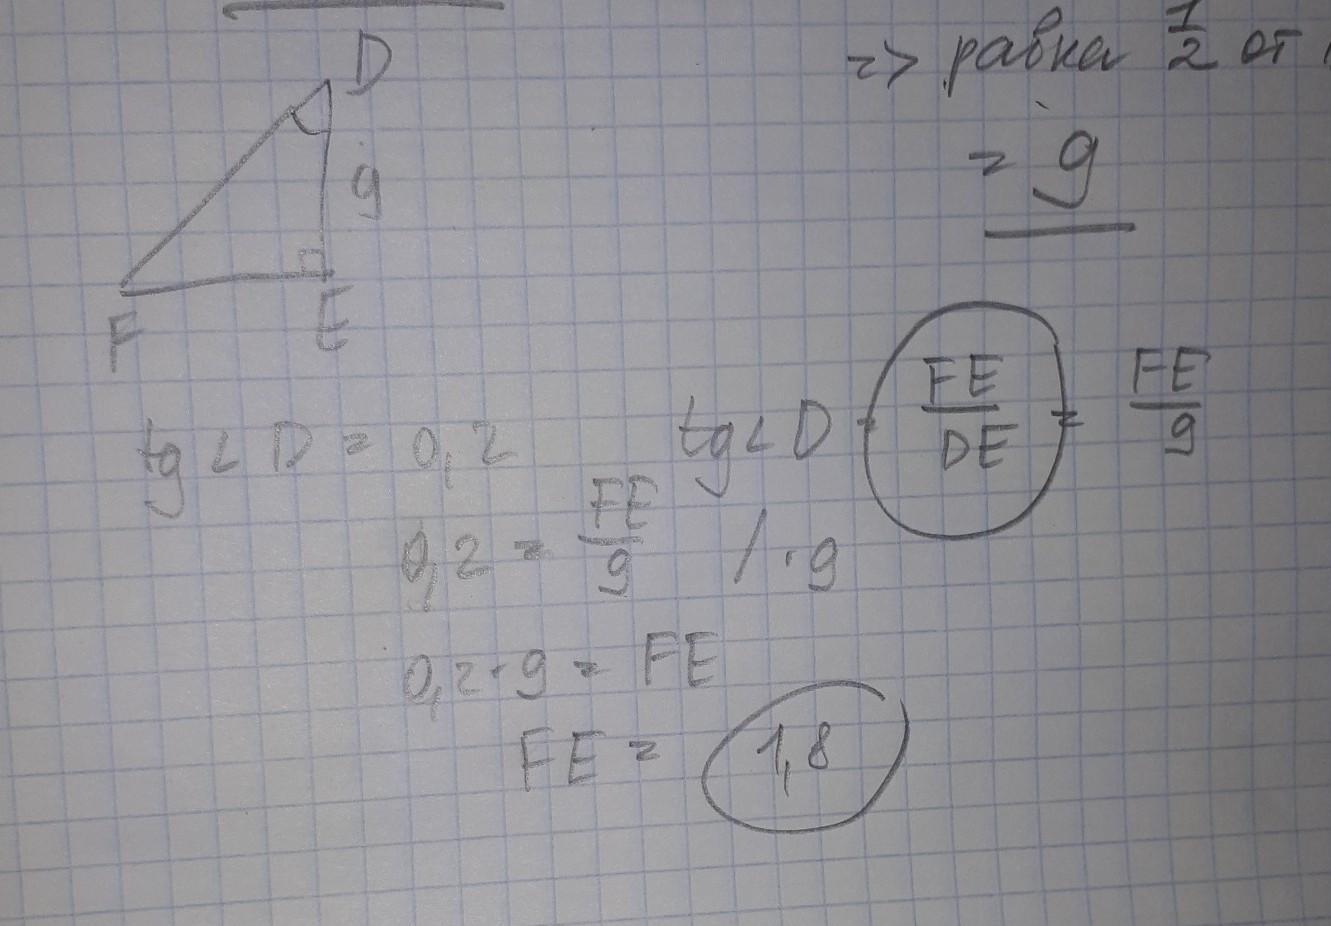 => равна 1/2 от
= 9
D
9
F E
tg ∠ D = 0,2 tg ∠ D = FE/DE = FE/9
0,2 = FE/9 / · 9
0,2 · 9 = FE
FE = 1,8